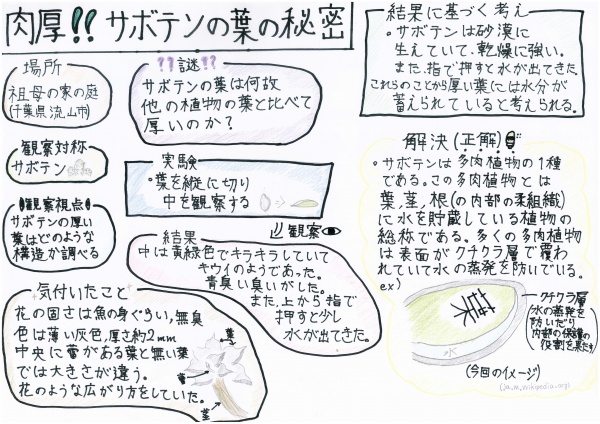 肉厚!! サボテンの葉の秘密
場所
祖母の家の庭
(千葉県流山市)
観察対称
サボテン
観察視点
サボテンの厚い
葉はどのような
構造か調べる
気付いたこと
花の固さは魚の身ぐらい,無臭
色は薄い灰色,厚さ約2mm
中央に蕾がある葉と無い葉
では大きさが違う。
花のような広がり方をしていた。
葉
蕾
茎
??謎??
サボテンの葉は何故
他の植物の葉と比べて
厚いのか?
実験
・葉を縦に切り
中を観察する
観察
結果
中は黄緑色でキラキラしていて
キウイのようであった。
青臭い臭いがした。
また、上から指で
押すと少し
水が出てきた。
結果に基づく考え
・サボテンは砂漠に
生えていて、乾燥に強い。
また、指で押すと水が出てきた。
これらのことから厚い葉には水分が
蓄えられていると考えられる。
解決(正解)
・サボテンは多肉植物の1種
である。この多肉植物とは
葉,茎,根(の内部の柔組織)
に水を貯蔵している植物の
総称である。多くの多肉植物
は表面がクチクラ層で覆わ
れていて水の蒸発を防いでいる。
ex)
葉
水
クチクラ層
水の蒸発を
防いだり
内部の保護の
役割を果たす
(今回のイメージ)
(ja.m.wikipedia.org)